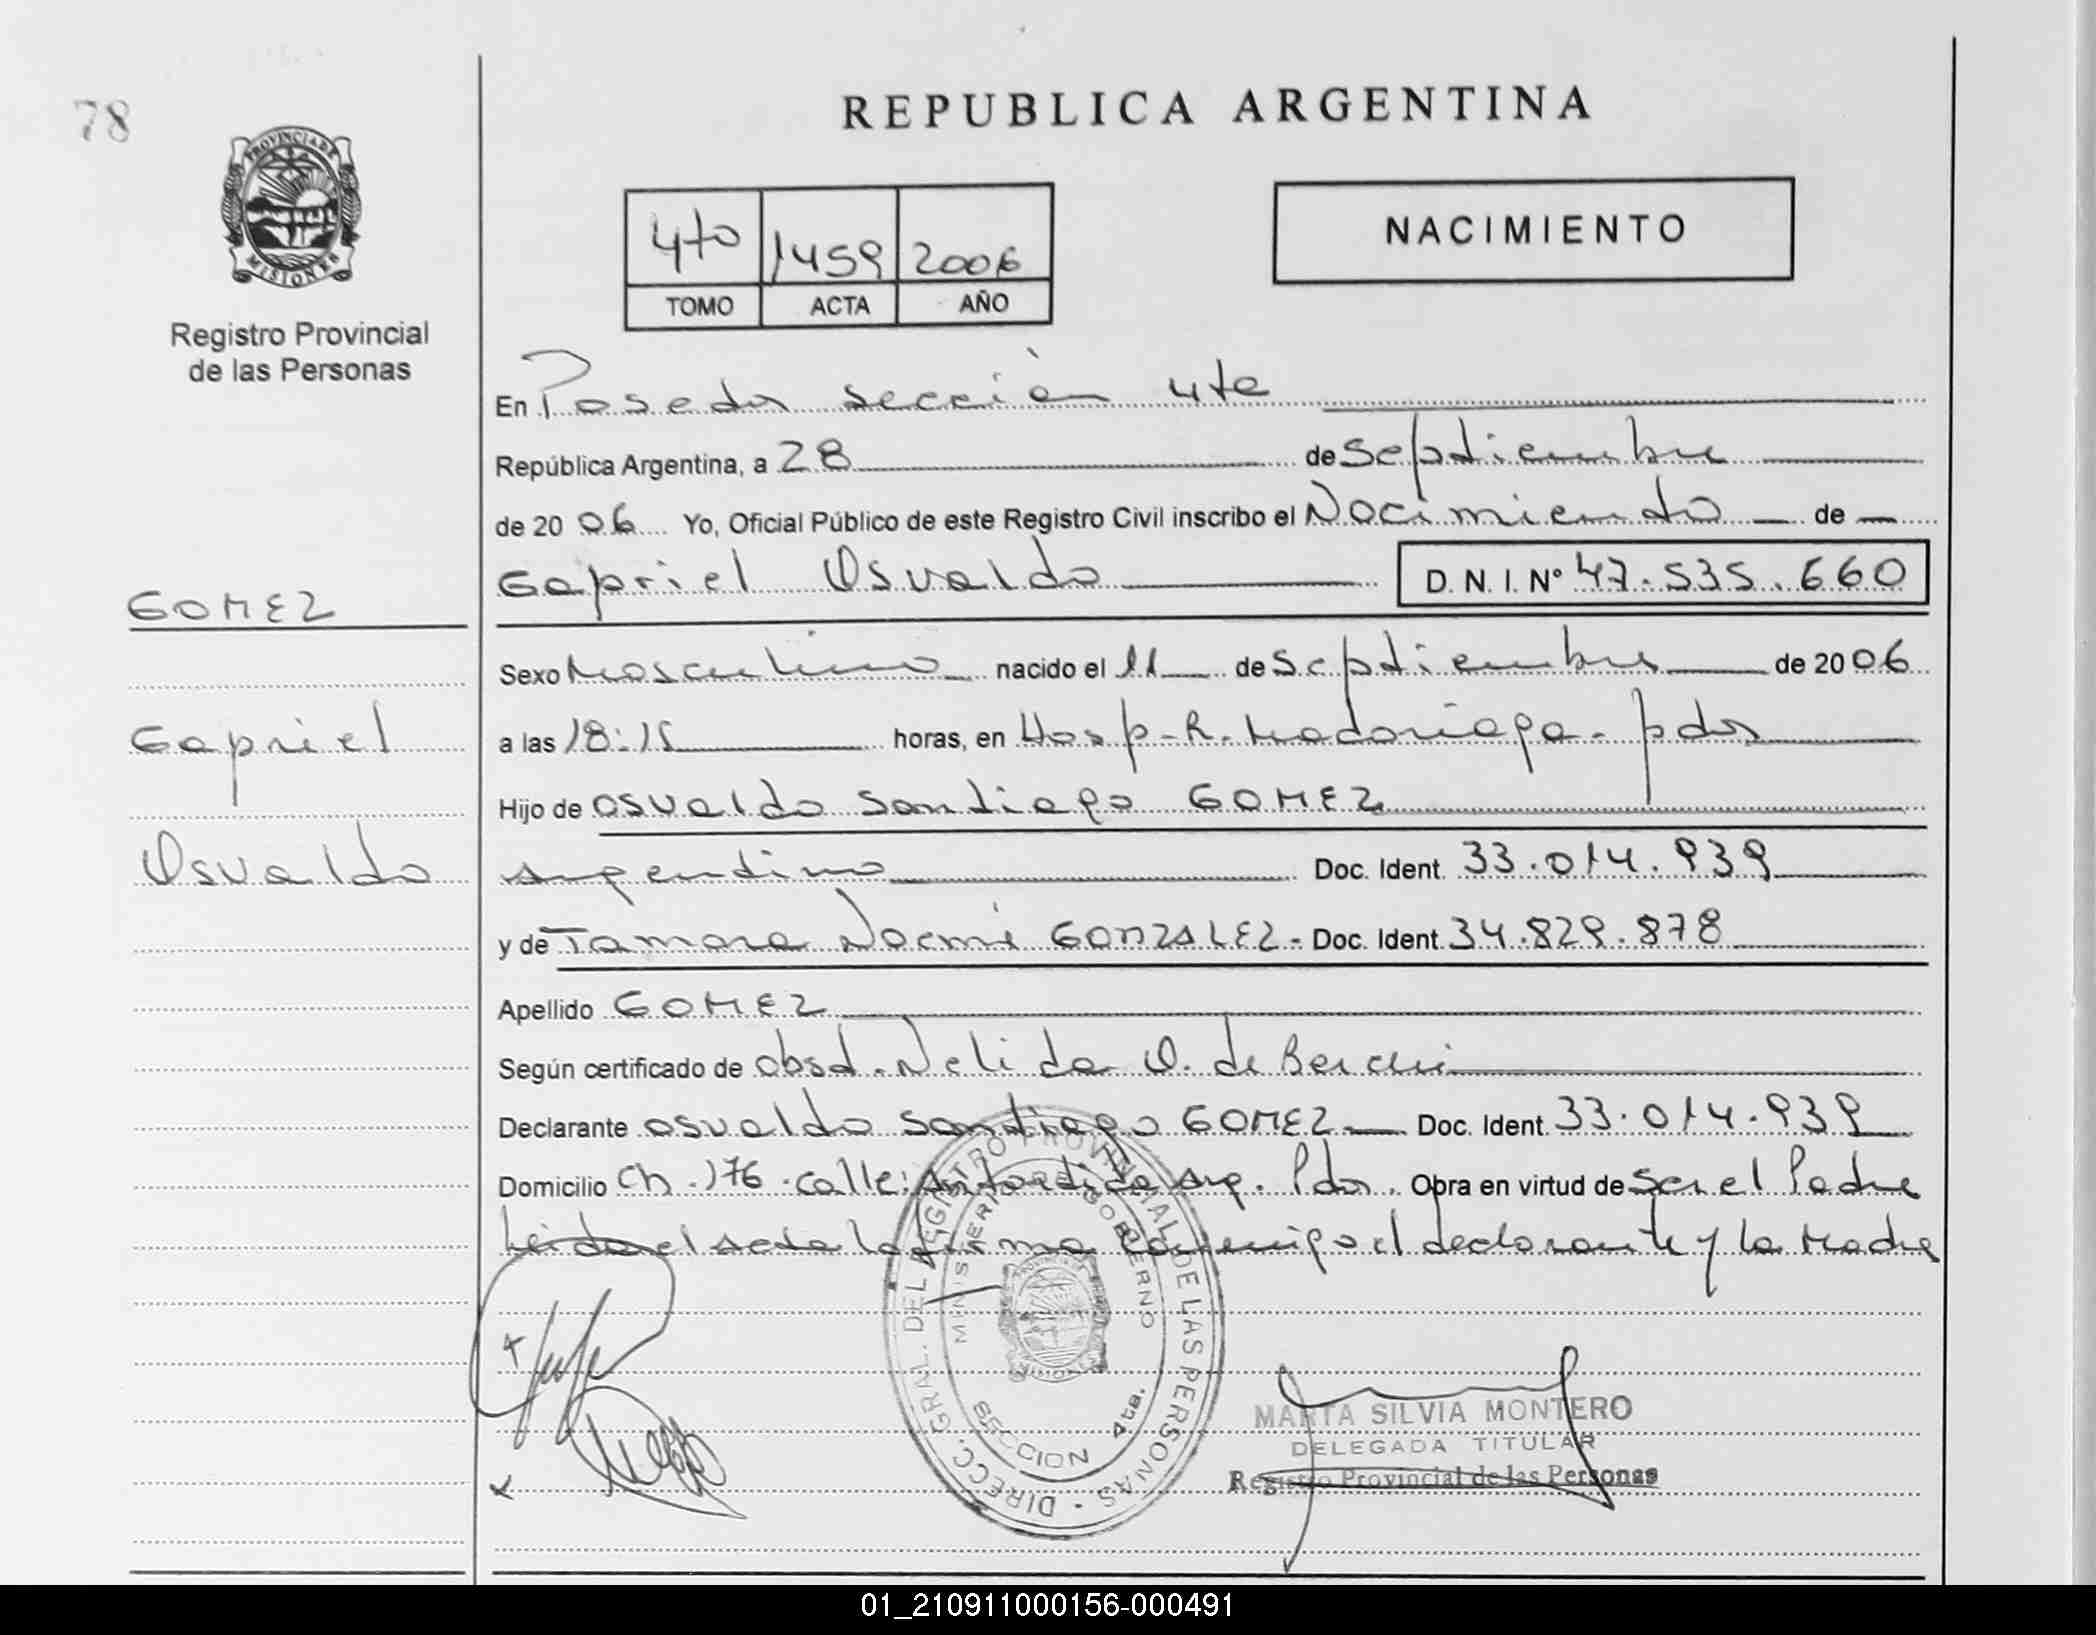 78
REPUBLICA ARGENTINA
PROVINCIA DE
MISIONES
Registro Provincial
de las Personas
4to 1459 2006
TOMO ACTA AÑO
NACIMIENTO
En Posadas sección 4ta
República Argentina, a 28 de septiembre
de 20 06 Yo, Oficial Público de este Registro Civil inscribo el Nacimiento de
Gapriel Osvaldo D. N. I. Nº 47.535.660
GOMEZ
Gapriel
Osvaldo
Sexo Masculino nacido el 11 de Septiembre de 20 06
a las 18:15 horas, en Hosp. R. Madariaga. pdas
Hijo de Osvaldo Santiago GOMEZ
Argentino Doc. Ident. 33.014.939
y de Tamara Noemi GONZALEZ - Doc. Ident. 34.829.878
Apellido GOMEZ
Según certificado de obst. Nelida O. de
Declarante Osvaldo Santiago GOMEZ Doc. Ident. 33.014.939
Domicilio Ch. 176. calle: Antartida Arg. Pdas. Obra en virtud de ser el Padre
Leida el acta la firma conmigo el declarante y la Madre
DIRECC. GRAL. DEL REGISTRO PROVINCIAL DE LAS PERSONAS
MINISTERIO GOBIERNO
SECCION 4ta.
MARTA SILVIA MONTERO
DELEGADA TITULAR
Registro Provincial de las Personas
01_210911000156-000491